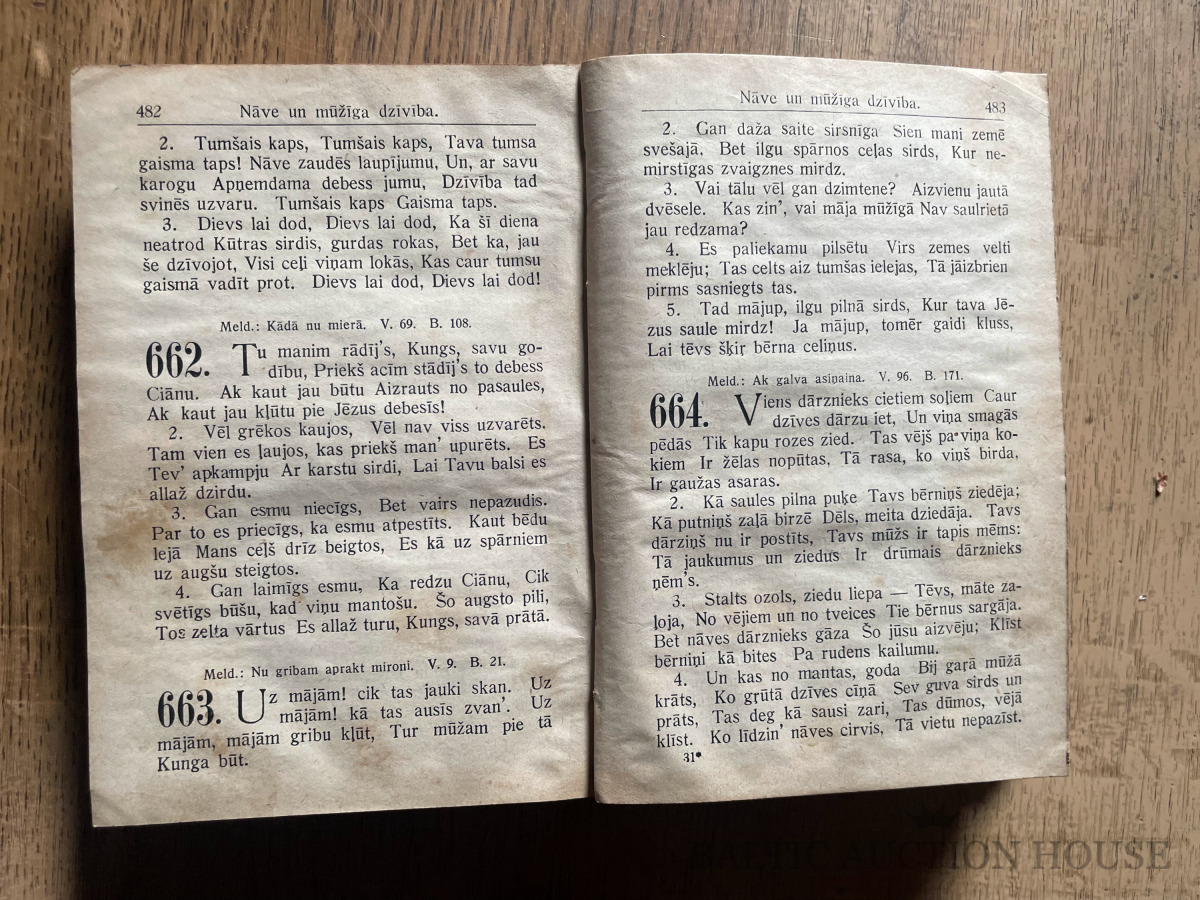 482 Nāve un mūžīga dzīvība.
2. Tumšais kaps, Tumšais kaps, Tava tumsa
gaisma taps! Nāve zaudēs laupījumu, Un, ar savu
karogu Apņemdama debess jumu, Dzīvība tad
svinēs uzvaru. Tumšais kaps Gaisma taps.
3. Dievs lai dod, Dievs lai dod, Ka šī diena
neatrod Kūtras sirdis, gurdas rokas, Bet ka, jau
še dzīvojot, Visi ceļi viņam lokās, Kas caur tumsu
gaismā vadīt prot. Dievs lai dod, Dievs lai dod!
Meld.: Kādā nu mierā. V. 69. B. 108.
662. Tu manim rādīj's, Kungs, savu go-
dību, Priekš acīm stādīj's to debess
Ciānu. Ak kaut jau būtu Aizrauts no pasaules,
Ak kaut jau kļūtu pie Jēzus debesīs!
2. Vēl grēkos kaujos, Vēl nav viss uzvarēts.
Tam vien es ļaujos, kas priekš man' upurēts. Es
Tev' apkampju Ar karstu sirdi, Lai Tavu balsi es
allaž dzirdu.
3. Gan esmu niecīgs, Bet vairs nepazudis.
Par to es priecīgs, ka esmu atpestīts. Kaut bēdu
lejā Mans ceļš drīz beigtos, Es kā uz spārniem
uz augšu steigtos.
4. Gan laimīgs esmu, Ka redzu Ciānu, Cik
svētīgs būšu, kad viņu mantošu. Šo augsto pili,
Tos zelta vārtus Es allaž turu, Kungs, savā prātā.
Meld.: Nu gribam aprakt mironi. V. 9. B. 21.
663. Uz mājām! cik tas jauki skan. Uz
mājām! kā tas ausīs zvan'. Uz
mājām, mājām gribu kļūt, Tur mūžam pie tā
Kunga būt.
Nāve un mūžīga dzīvība. 483
2. Gan daža saite sirsnīga Sien mani zemē
svešajā, Bet ilgu spārnos ceļas sirds, Kur ne-
mirstīgas zvaigznes mirdz.
3. Vai tālu vēl gan dzimtene? Aizvienu jautā
dvēsele. Kas zin', vai māja mūžīgā Nav saulrietā
jau redzama?
4. Es paliekamu pilsētu Virs zemes velti
meklēju; Tas celts aiz tumšas ielejas, Tā jāizbrien
pirms sasniegts tas.
5. Tad mājup, ilgu pilnā sirds, Kur tava Jē-
zus saule mirdz! Ja mājup, tomēr gaidi kluss,
Lai tēvs šķir bērna celiņus.
Meld.: Ak galva asiņaina. V. 96. B. 171.
664. Viens dārznieks cietiem soļiem Caur
dzīves dārzu iet, Un viņa smagās
pēdās Tik kapu rozes zied. Tas vējš pa viņa ko-
kiem Ir žēlas nopūtas, Tā rasa, ko viņš birda,
Ir gaužas asaras.
2. Kā saules pilna puķe Tavs bērniņš ziedēja;
Kā putniņš zaļā birzē Dēls, meita dziedāja. Tavs
dārziņš nu ir postīts, Tavs mūžs ir tapis mēms:
Tā jaukumus un ziedus Ir drūmais dārznieks
ņēm's.
3. Stalts ozols, ziedu liepa — Tēvs, māte za-
ļoja, No vējiem un no tveices Tie bērnus sargāja.
Bet nāves dārznieks gāza Šo jūsu aizvēju; Klīst
bērniņi kā bites Pa rudens kailumu.
4. Un kas no mantas, goda Bij garā mūžā
krāts, Ko grūtā dzīves cīņā Sev guva sirds un
prāts, Tas deg kā sausi zari, Tas dūmos, vējā
klīst. Ko līdzin' nāves cirvis, Tā vietu nepazīst.
31*
BALTIC AUCTION HOUSE